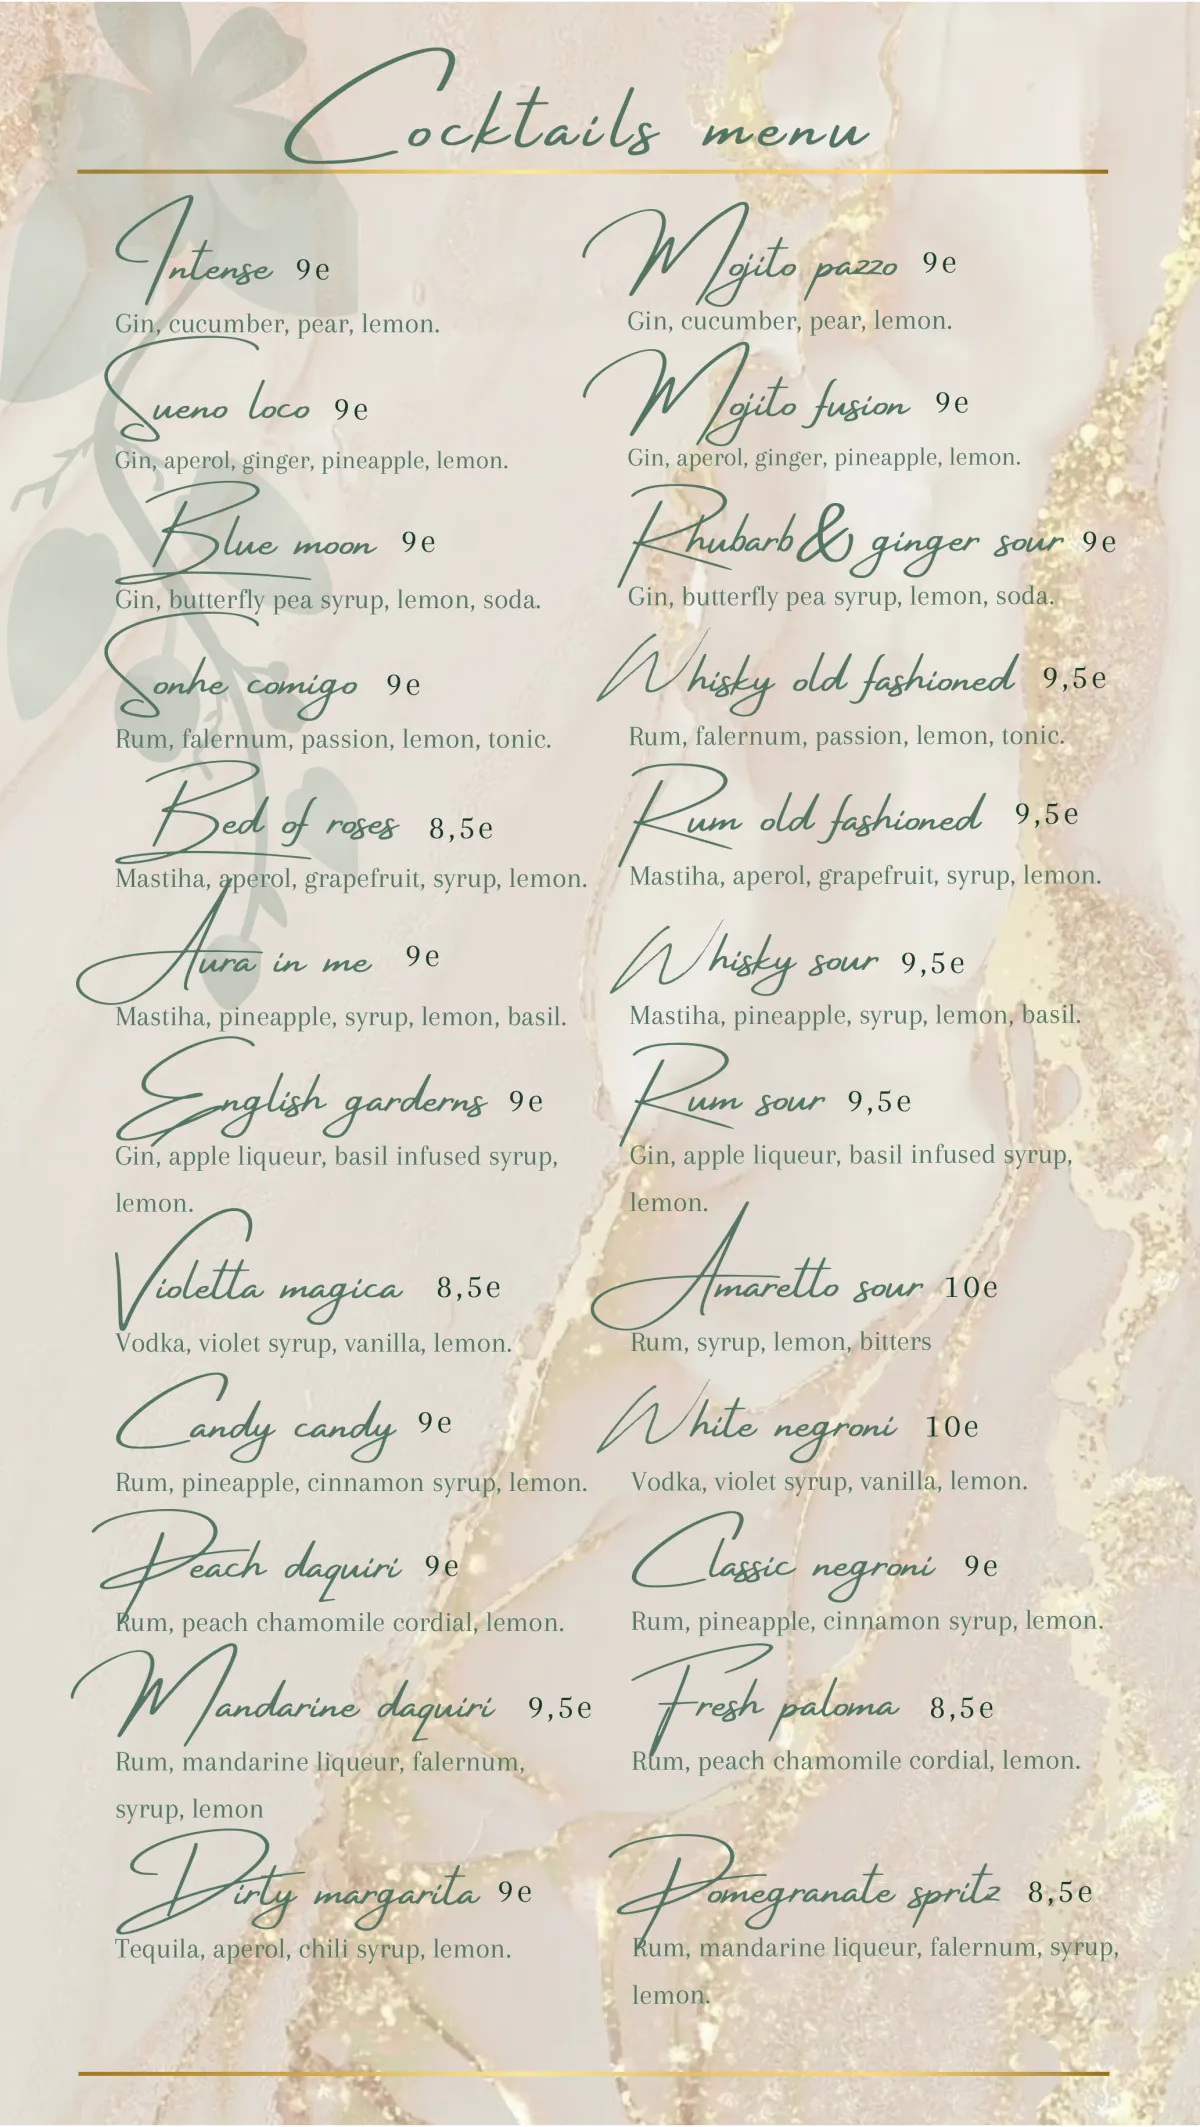 Cocktails menu
Intense 9e
Gin, cucumber, pear, lemon.
Sueno loco 9e
Gin, aperol, ginger, pineapple, lemon.
Blue moon 9e
Gin, butterfly pea syrup, lemon, soda.
Sonhe comigo 9e
Rum, falernum, passion, lemon, tonic.
Bed of roses 8,5e
Mastiha, aperol, grapefruit, syrup, lemon.
Aura in me 9e
Mastiha, pineapple, syrup, lemon, basil.
English garderns 9e
Gin, apple liqueur, basil infused syrup,
lemon.
Violetta magica 8,5e
Vodka, violet syrup, vanilla, lemon.
Candy candy 9e
Rum, pineapple, cinnamon syrup, lemon.
Peach daquiri 9e
Rum, peach chamomile cordial, lemon.
Mandarine daquiri 9,5e
Rum, mandarine liqueur, falernum,
syrup, lemon
Dirty margarita 9e
Tequila, aperol, chili syrup, lemon.
Mojito pazzo 9e
Gin, cucumber, pear, lemon.
Mojito fusion 9e
Gin, aperol, ginger, pineapple, lemon.
Rhubarb & ginger sour 9e
Gin, butterfly pea syrup, lemon, soda.
Whisky old fashioned 9,5e
Rum, falernum, passion, lemon, tonic.
Rum old fashioned 9,5e
Mastiha, aperol, grapefruit, syrup, lemon.
Whisky sour 9,5e
Mastiha, pineapple, syrup, lemon, basil.
Rum sour 9,5e
Gin, apple liqueur, basil infused syrup,
lemon.
Amaretto sour 10e
Rum, syrup, lemon, bitters
White negroni 10e
Vodka, violet syrup, vanilla, lemon.
Classic negroni 9e
Rum, pineapple, cinnamon syrup, lemon.
Fresh paloma 8,5e
Rum, peach chamomile cordial, lemon.
Pomegranate spritz 8,5e
Rum, mandarine liqueur, falernum, syrup,
lemon.